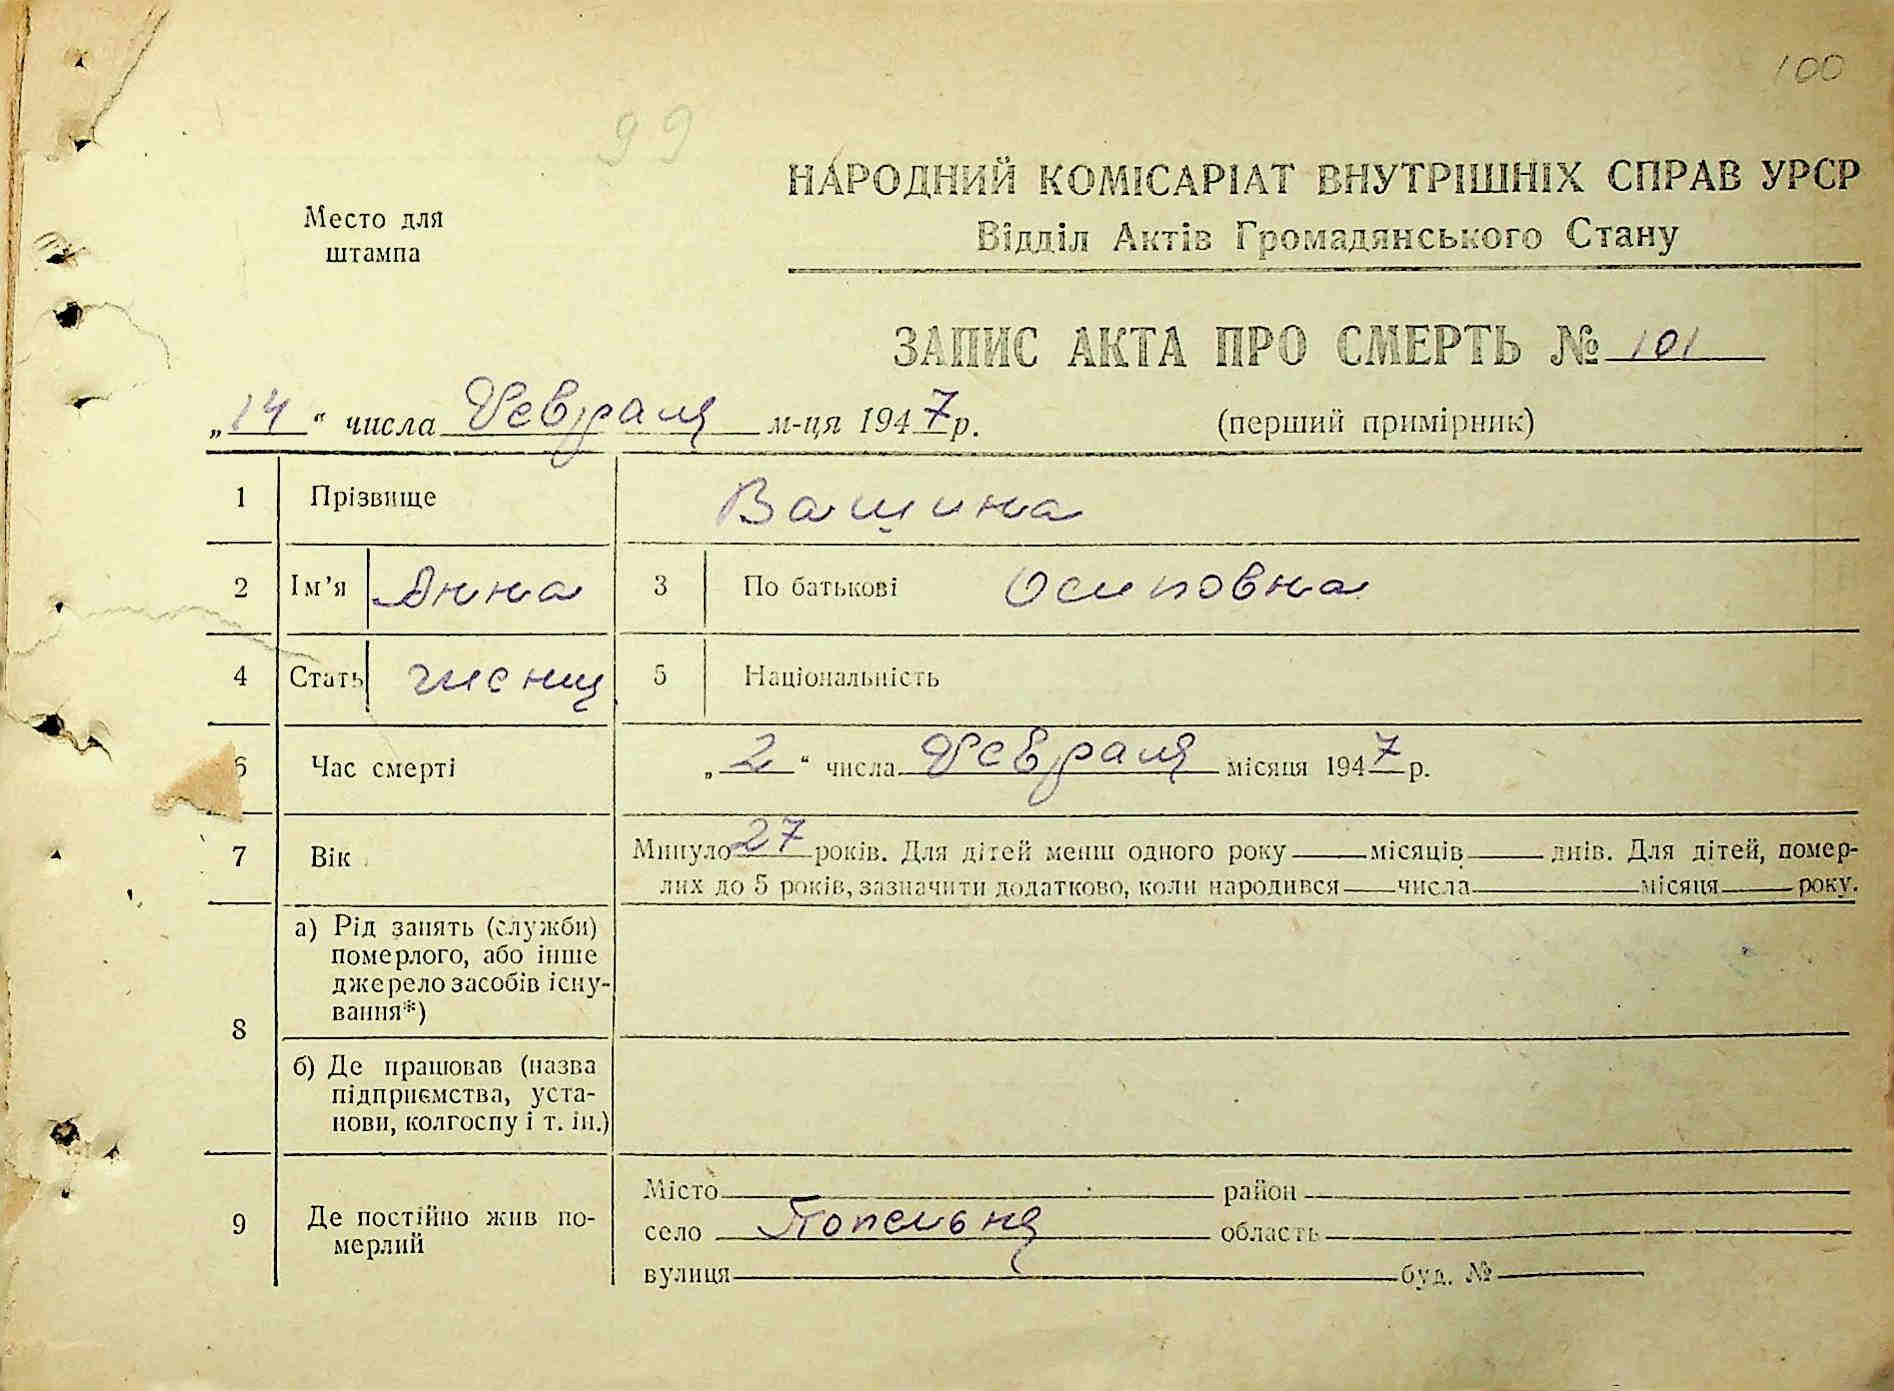 100
99
Место для
штампа
НАРОДНИЙ КОМІСАРІАТ ВНУТРІШНІХ СПРАВ УРСР
Відділ Актів Громадянського Стану
ЗАПИС АКТА ПРО СМЕРТЬ № 101
„14“ числа Февраля м-ця 1947 р. (перший примірник)
1 Прізвище Ващина
2 Ім'я Анна 3 По батькові Осиповна
4 Стать 5 Національність
6 Час смерті „2“ числа Февраля місяця 1947 р.
7 Вік Минуло 27 років. Для дітей менш одного року місяців днів. Для дітей, помер-
лих до 5 років, зазначити додатково, коли народився числа місяця року.
8 а) Рід занять (служби)
померлого, або інше
джерело засобів існу-
вання*)
б) Де працював (назва
підприємства, уста-
нови, колгоспу і т. ін.)
9 Де постійно жив по-
мерлий
Місто район
село Попельня область
вулиця буд. №